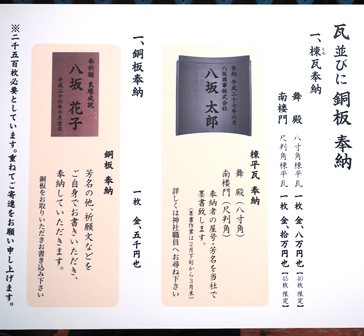 瓦 並びに 銅板 奉納
一、棟瓦奉納
舞 殿 八寸角棟平瓦 一枚 金、八万円也【40枚 限定】
南楼門 尺判角棟平瓦 一枚 金、拾万円也【45枚 限定】
奉納 平成二十七年六月
八坂商事株式会社
八坂 太郎
棟平瓦 奉納
舞 殿（八寸角）
南楼門（尺判角）
奉納者の屋号・芳名を当社で
墨書致します。
（墨書作業は2月下旬から3月末）
詳しくは神社職員へお尋ね下さい
一、銅板奉納 一枚 金、五千円也
奉祈願 良縁成就
八坂 花子
平成二十六年十月吉日
銅板 奉納
芳名の他、祈願文などを
ご自身でお書きいただき、
奉納していただきます。
銅板をお取りいただきお書き込み下さい
※二千五百枚必要としています。重ねてご寄進をお願い申し上げます。